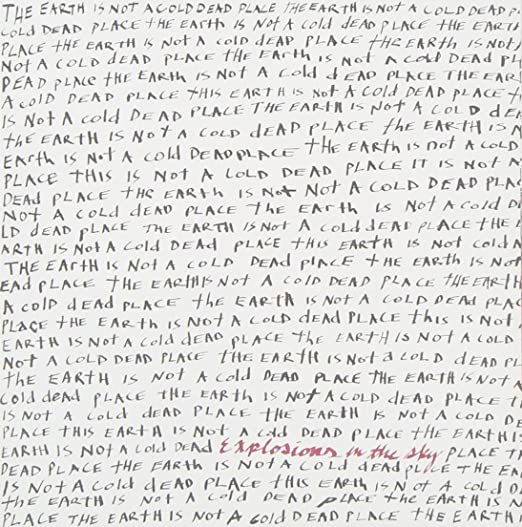 THE EARTH IS NOT A COLD DEAD PLACE THE EARTH IS NOT A COLD DEAD P
COLD DEAD PLACE THE EARTH IS NOT A COLD DEAD PLACE THE EARTH IS
PLACE THE EARTH IS NOT A COLD DEAD PLACE THE EARTH IS NOT
NOT A COLD DEAD PLACE THE EARTH IS NOT A COLD DEAD PL
DEAD PLACE THE EARTH IS NOT A COLD DEAD PLACE THE EAR
A COLD DEAD PLACE THIS EARTH IS NOT A COLD DEAD PLACE t
IS NOT A COLD DEAD PLACE THE EARTH IS NOT A COLD DE
THE EARTH IS NOT A COLD DEAD PLACE THE EARTH IS N
EARTH IS NOT A COLD DEAD PLACE THE EARTH IS NOT A COLD
PLACE THIS IS NOT A COLD DEAD PLACE IT IS NOT A
DEAD PLACE THE EARTH IS NOT NOT A COLD DEAD PLA
NOT A COLD DEAD PLACE THE EARTH IS NOT A COLD D
LD DEAD PLACE THE EARTH IS NOT A COLD DEAD PLACE THE
ARTH IS NOT A COLD DEAD PLACE THIS EARTH IS NOT COLD A
THE EARTH IS NOT A COLD DEAD PLACE THE EARTH IS NOT
EAD PLACE THE EARTH IS NOT A COLD DEAD PLACE THE EARTH
A COLD DEAD PLACE THE EARTH IS NOT A COLD DEAD PLAC
PLACE THE EARTH IS NOT A COLD DEAD PLACE THIS IS NOT
EARTH IS NOT A COLD DEAD PLACE THE EARTH IS NOT A COLD
NOT A COLD DEAD PLACE THE EARTH IS NOT A COLD DEAD PL
THE EARTH IS NOT A COLD DEAD PLACE THE EARTH IS NOT A
COLD DEAD PLACE THE EARTH IS NOT A COLD DEAD PLAC
IS NOT A COLD DEAD PLACE THE EARTH IS NOT A COLD DE
PLACE THIS EARTH IS NOT A COLD DEAD PLACE THE EARTH IS
EARTH IS NOT A COLD DEAD Explosions in the sky PLACE T
DEAD PLACE THE EARTH IS NOT A COLD DEAD PLACE THE EA
IS NOT A COLD DEAD PLACE THIS EARTH IS NOT A COLD D
THE EARTH IS NOT A COLD DEAD PLACE THE EARTH IS N
PLACE THE EARTH IS NOT A COLD DEAD PLACE THE EARTH